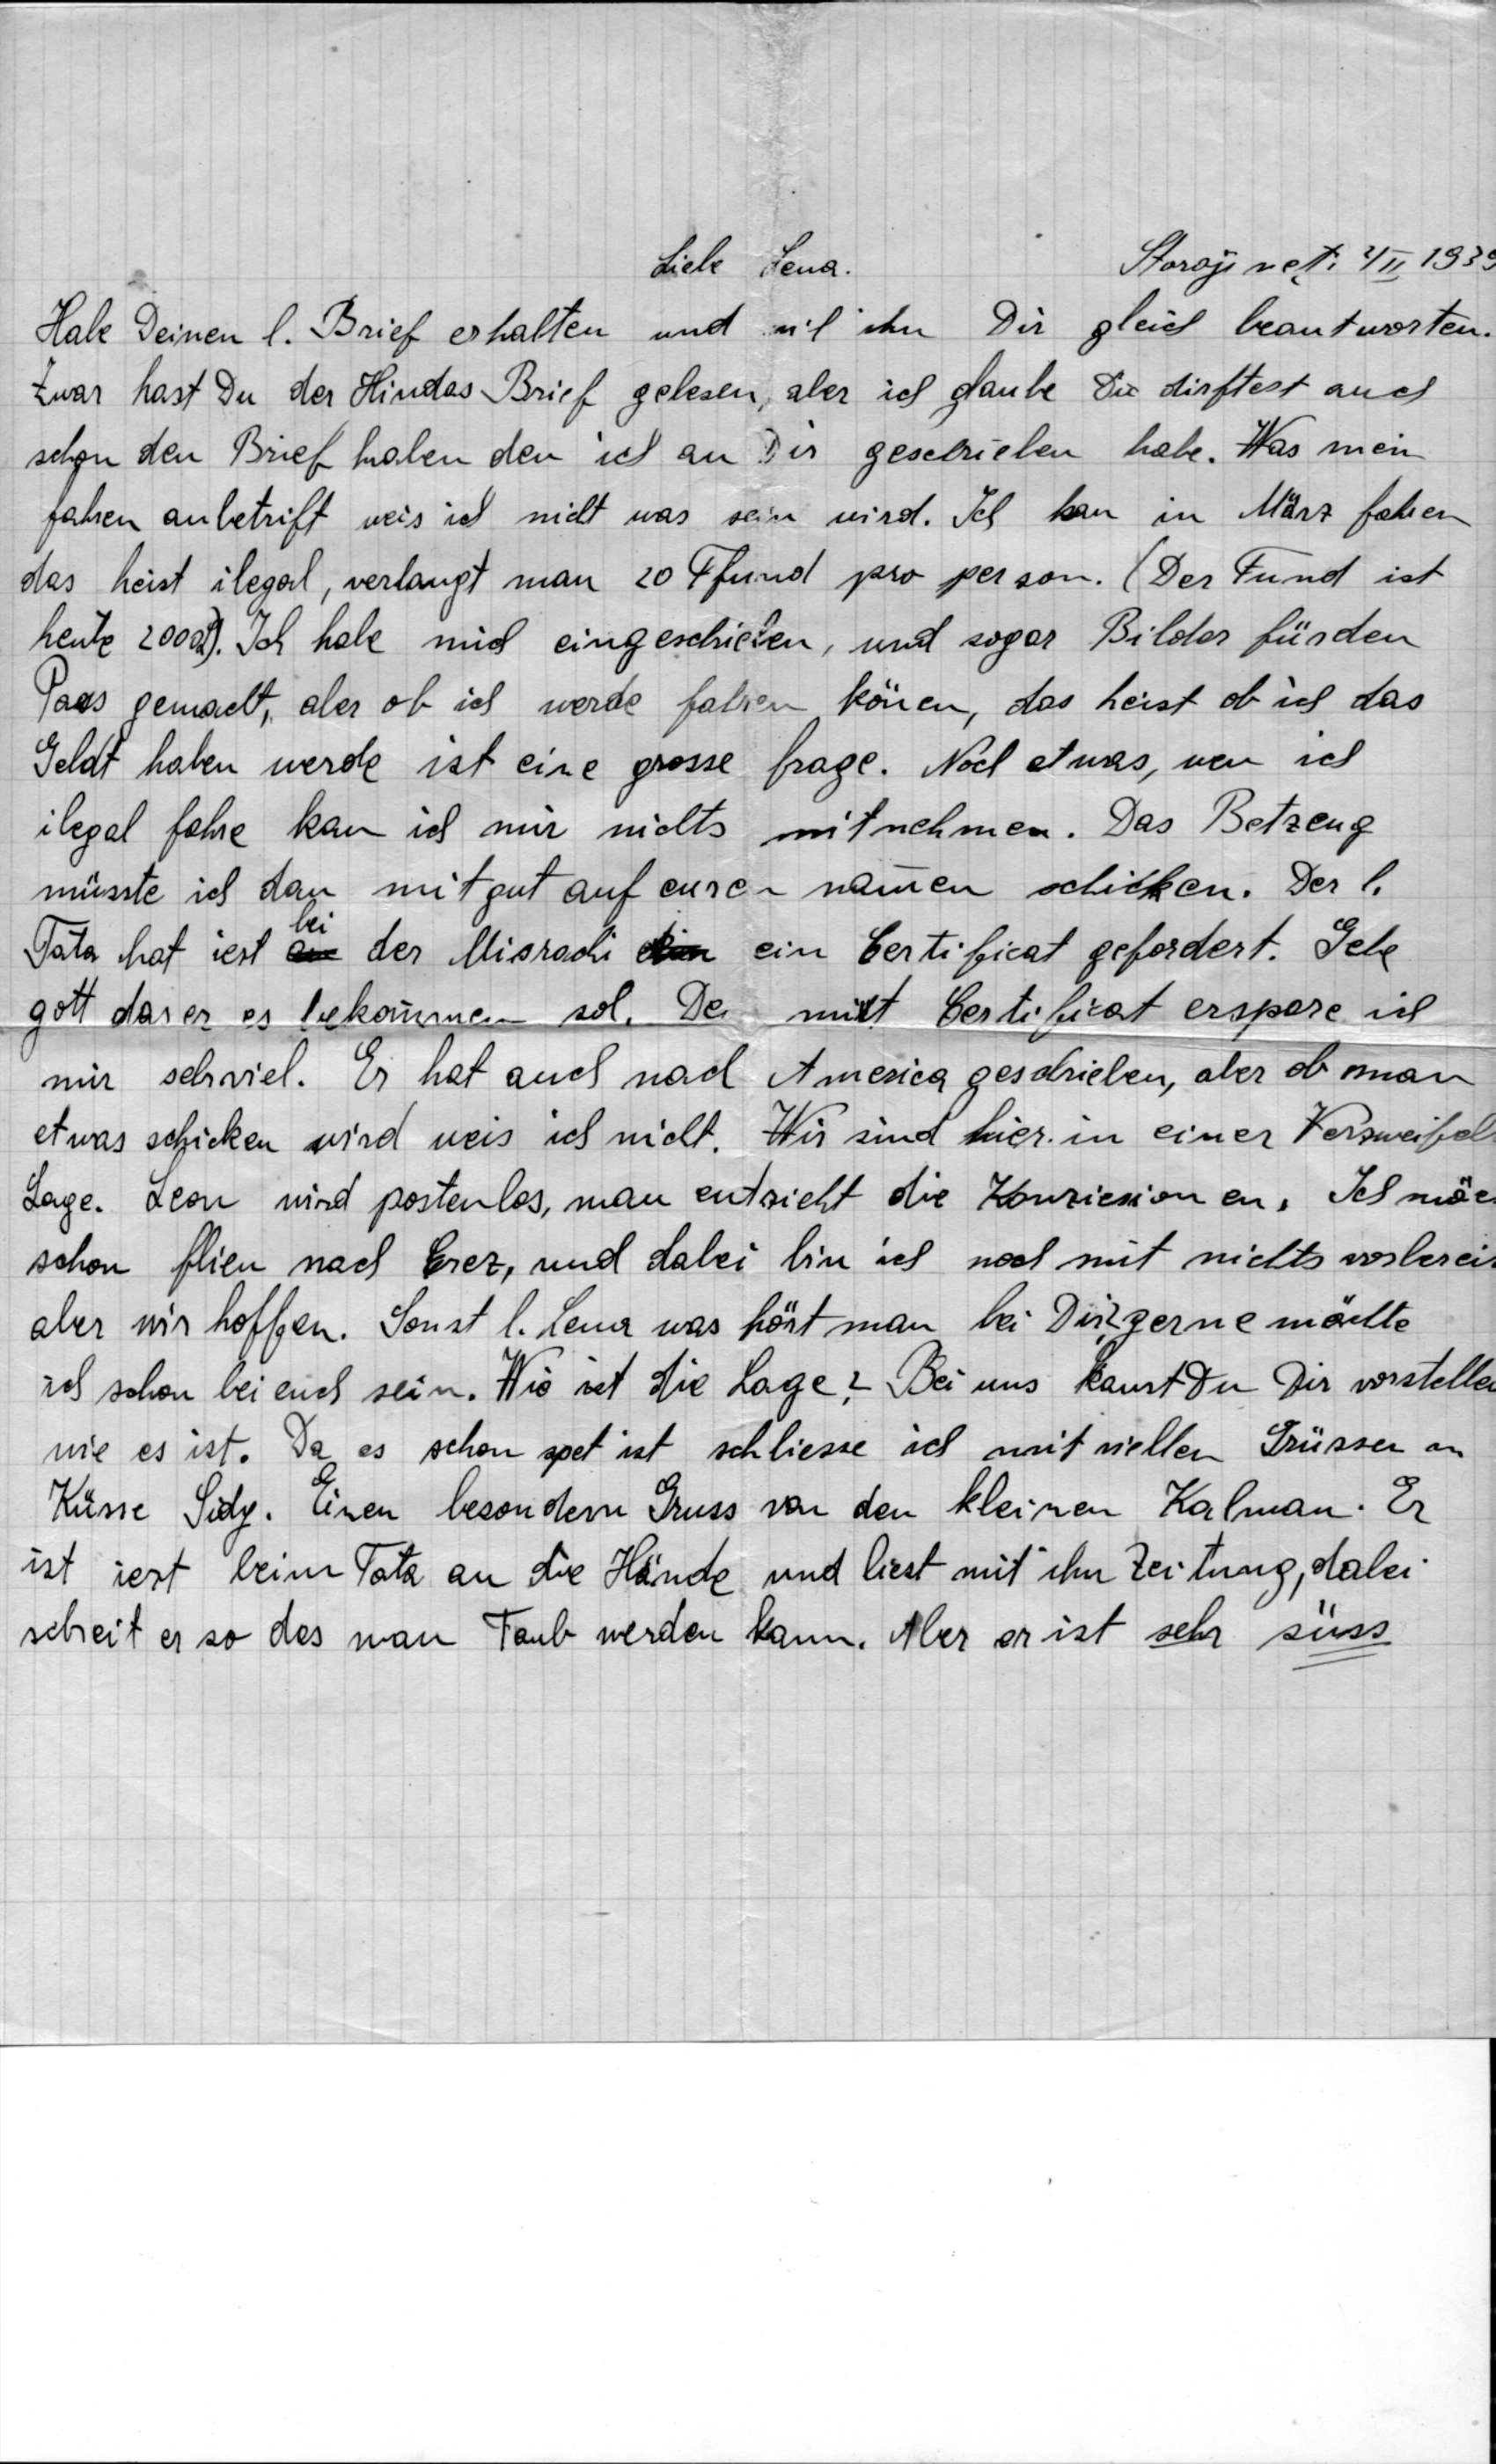 Liebe Lena. Storojineţi 4/II 1939
Habe Deinen l. Brief erhalten und wil ihn Dir gleich beantworten.
Zwar hast Du der Hindas Brief gelesen, aber ich glaube Du dirftest auch
schon den Brief haben den ich an Dir geschrieben habe. Was mein
fahren anbetrift weis ich nicht was sein wird. Ich kan in März fahren
das heist ilegal, verlangt man 20 Pfund pro person. (Der Fund ist
heute 2000). Ich habe mich eingeschrieben, und sogar Bilder für den
Pass gemacht, aber ob ich werde fahren könen, das heist ob ich das
Geldt haben werde ist eine grosse frage. Noch etwas, wen ich
ilegal fahre kan ich mir nichts mitnehmen. Das Betzeug
müsste ich dan mit gut auf euren namen schicken. Der l.
Tata hat iest bei der Misrachi ein Certificat gefordert. Gebe
gott das er es bekommen sol. De mit Certificat erspare ich
mir sehrviel. Er hat auch nach America geschrieben, aber ob man
etwas schicken wird weis ich nicht. Wir sind hier in einer Verzweifel
Lage. Leon wird postenlos, man entzieht die Konziesionen. Ich möc
schon flien nach Erez, und dabei bin ich noch mit nichts vorberei
aber wir hoffen. Sonst l. Lena was hört man bei Dir? gerne möchte
ich schon bei euch sein. Wie ist die Lage? Bei uns kanst Du Dir vorstellen
wie es ist. Da es schon spet ist schliesse ich mit viellen Grüssen un
Küsse Sidy. Einen besondern Gruss von den kleinen Kalman. Er
ist iest beim Tata an die Hände und liest mit ihn Zeitung, dabei
schreit er so das man Taub werden kann. Aber er ist sehr süss